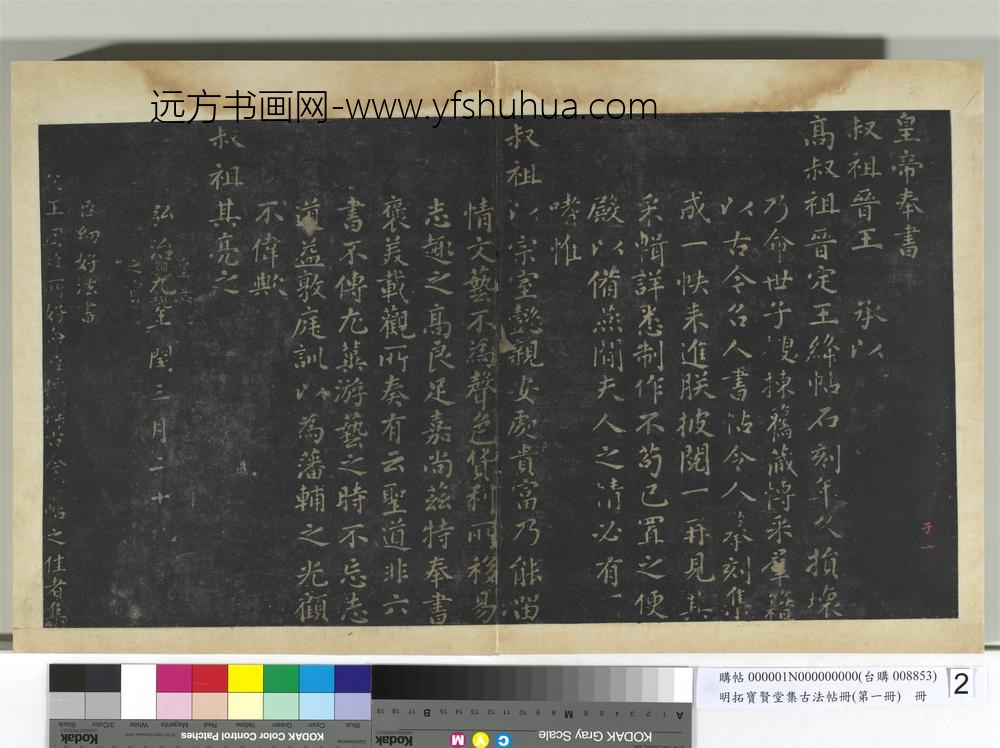 远方书画网-www.yfshuhua.com
皇帝奉書
叔祖晉王 承以
高叔祖晉定王絳帖石刻年久損壞
乃命世子溲揀舊藏博采羣籍
以古今名人書帖令人摹刻集
成一帙来進朕披閱一再見其
采輯詳悉制作不苟已置之便
殿以備燕閒夫人之情必有一
嗜惟
叔祖以宗室懿親安處貴富乃能留
情文藝不為聲色貨利所移易
志趣之高良足嘉尚兹特奉書
褒美載觀所奏有云聖道非六
書不傳尤冀游藝之時不忘志
道益敦庭訓以為藩輔之光顧
不偉歟
叔祖其亮之
弘治九年閏三月二十
臣幼好法書
之佳者集
子一
購帖 000001N000000000(台購 008853)
明拓寶賢堂集古法帖冊(第一冊) 冊
2
Black
3/Color
White
Magenta
Red
Yellow
Green
Cyan
Blue
Kodak
KODAK Color Control Patches
KODAK Gray Scale
Kodak
A 1 2 3 4 5 6 M 8 9 10 11 12 13 14 15 B 17 18 19
C Y M